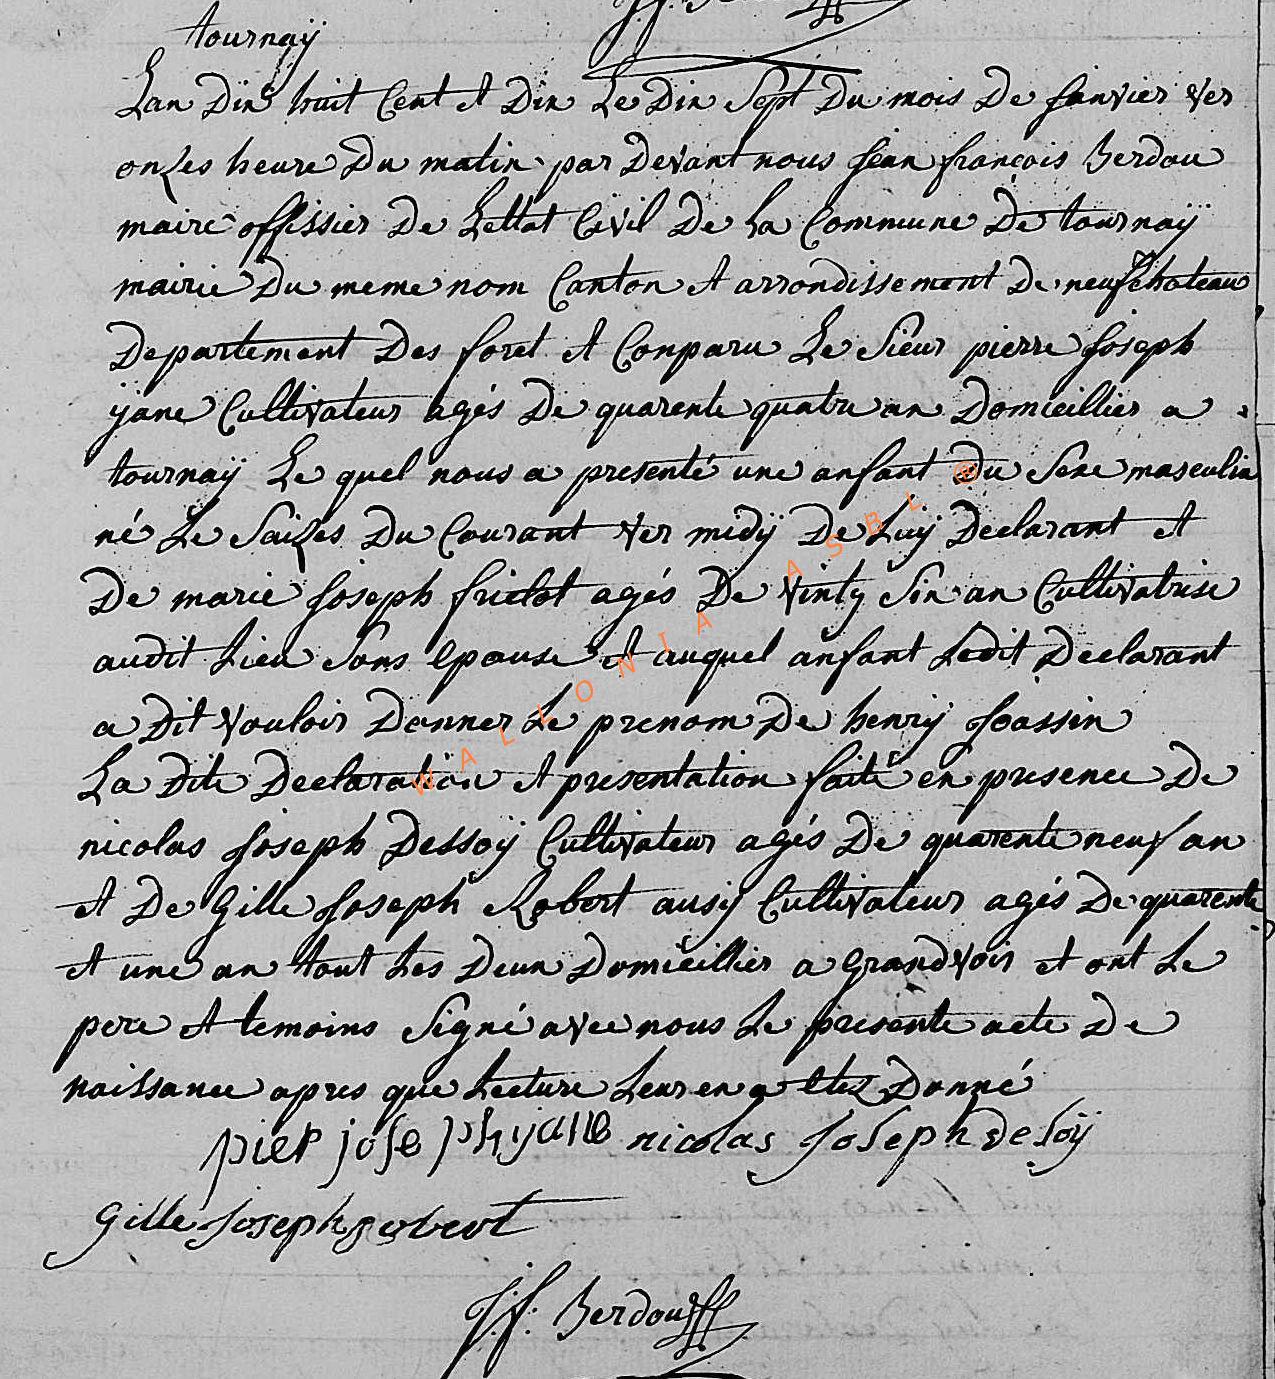 tournaÿ
Lan Dix huit Cent et Dix Le Dix Sept Du mois De janvier ver
onzes heure Du matin par Devant nous jean françois Berdou
maire offissier De Lettat Civil De La Commune De tournaÿ
mairie Du meme nom Canton et arrondissement De neufchateau
Departement Des foret et Conparu Le Sieur pierre joseph
ÿane Cultivateur agés De quarente quatre an Domicillier a
tournaÿ Le quel nous a presenté une anfant Du Sexe masculin
né Le Saizes Du Courant ver midÿ De Luÿ Declarant et
De marie joseph friclot agés De vinty Six an Cultivatrise
audit Lieu Sons epouse et auquel anfant Ledit Declarant
a Dit vouloir Donner Le prenom De henrÿ joassin
La Dite Declaration et presentation faite en presence De
nicolas joseph Dessoÿ Cultivateur agés De quarente neuf an
et De Gille joseph Robert ausÿ Cultivateur agés De quarente
et une an tout Les Deux Domicillier a grandvoir et ont Le
pere et temoins Signé avec nous Le presente acte De
naissance apres que Lecture Leur en a etez Donné
pier joseph ijane nicolas joseph desoÿ
Gille joseph robert
J. f. Berdou
WALLONIA ASBL ®